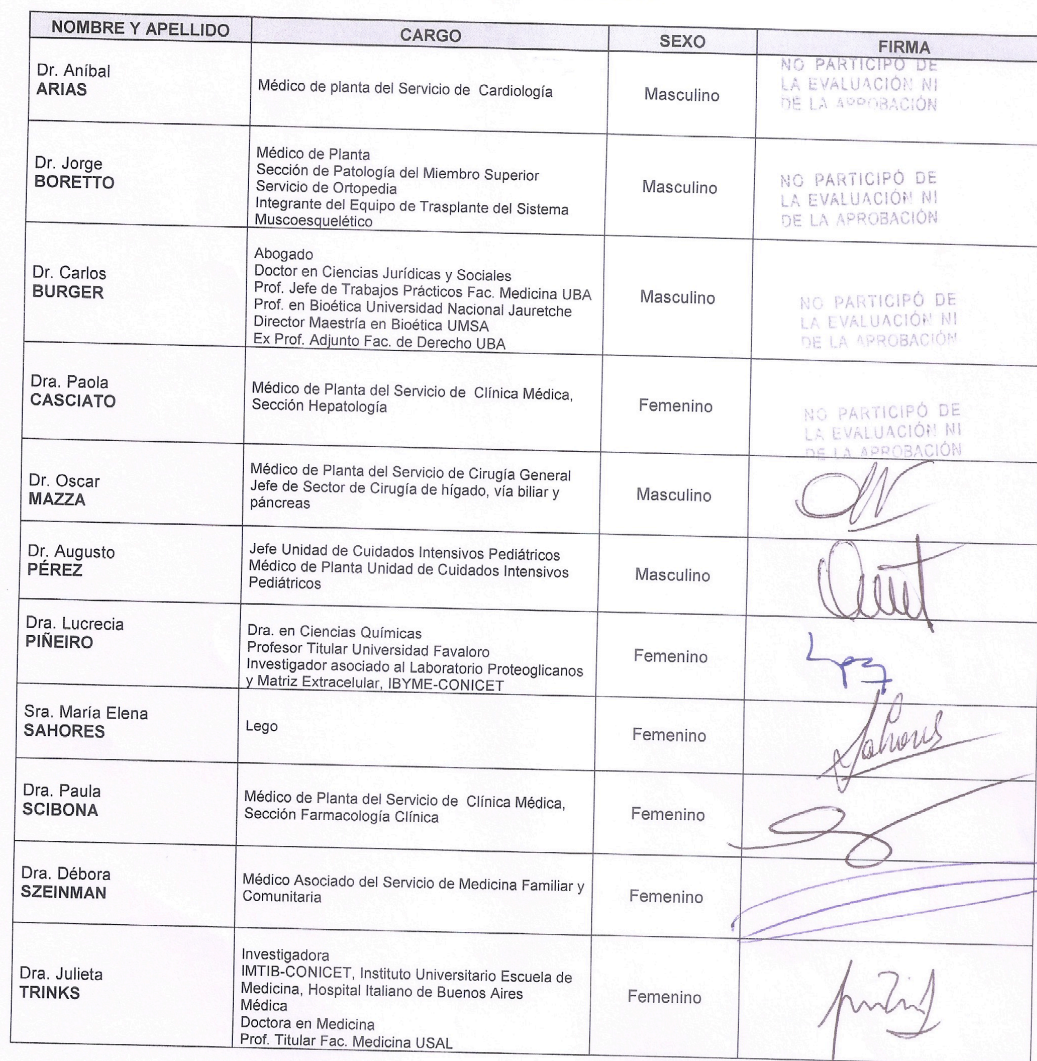 NOMBRE Y APELLIDO CARGO SEXO FIRMA
Dr. Aníbal
ARIAS
Médico de planta del Servicio de Cardiología
Masculino
NO PARTICIPÓ DE
LA EVALUACIÓN NI
DE LA APROBACIÓN
Dr. Jorge
BORETTO
Médico de Planta
Sección de Patología del Miembro Superior
Servicio de Ortopedia
Integrante del Equipo de Trasplante del Sistema
Muscoesquelético
Masculino
NO PARTICIPÓ DE
LA EVALUACIÓN NI
DE LA APROBACIÓN
Dr. Carlos
BURGER
Abogado
Doctor en Ciencias Jurídicas y Sociales
Prof. Jefe de Trabajos Prácticos Fac. Medicina UBA
Prof. en Bioética Universidad Nacional Jauretche
Director Maestría en Bioética UMSA
Ex Prof. Adjunto Fac. de Derecho UBA
Masculino
NO PARTICIPÓ DE
LA EVALUACIÓN NI
DE LA APROBACIÓN
Dra. Paola
CASCIATO
Médico de Planta del Servicio de Clínica Médica,
Sección Hepatología
Femenino
NO PARTICIPÓ DE
LA EVALUACIÓN NI
DE LA APROBACIÓN
Dr. Oscar
MAZZA
Médico de Planta del Servicio de Cirugía General
Jefe de Sector de Cirugía de hígado, vía biliar y
páncreas
Masculino
Dr. Augusto
PÉREZ
Jefe Unidad de Cuidados Intensivos Pediátricos
Médico de Planta Unidad de Cuidados Intensivos
Pediátricos
Masculino
Dra. Lucrecia
PIÑEIRO
Dra. en Ciencias Químicas
Profesor Titular Universidad Favaloro
Investigador asociado al Laboratorio Proteoglicanos
y Matriz Extracelular, IBYME-CONICET
Femenino
Sra. María Elena
SAHORES
Lego
Femenino
Sahores
Dra. Paula
SCIBONA
Médico de Planta del Servicio de Clínica Médica,
Sección Farmacología Clínica
Femenino
Dra. Débora
SZEINMAN
Médico Asociado del Servicio de Medicina Familiar y
Comunitaria
Femenino
Dra. Julieta
TRINKS
Investigadora
IMTIB-CONICET, Instituto Universitario Escuela de
Medicina, Hospital Italiano de Buenos Aires
Médica
Doctora en Medicina
Prof. Titular Fac. Medicina USAL
Femenino